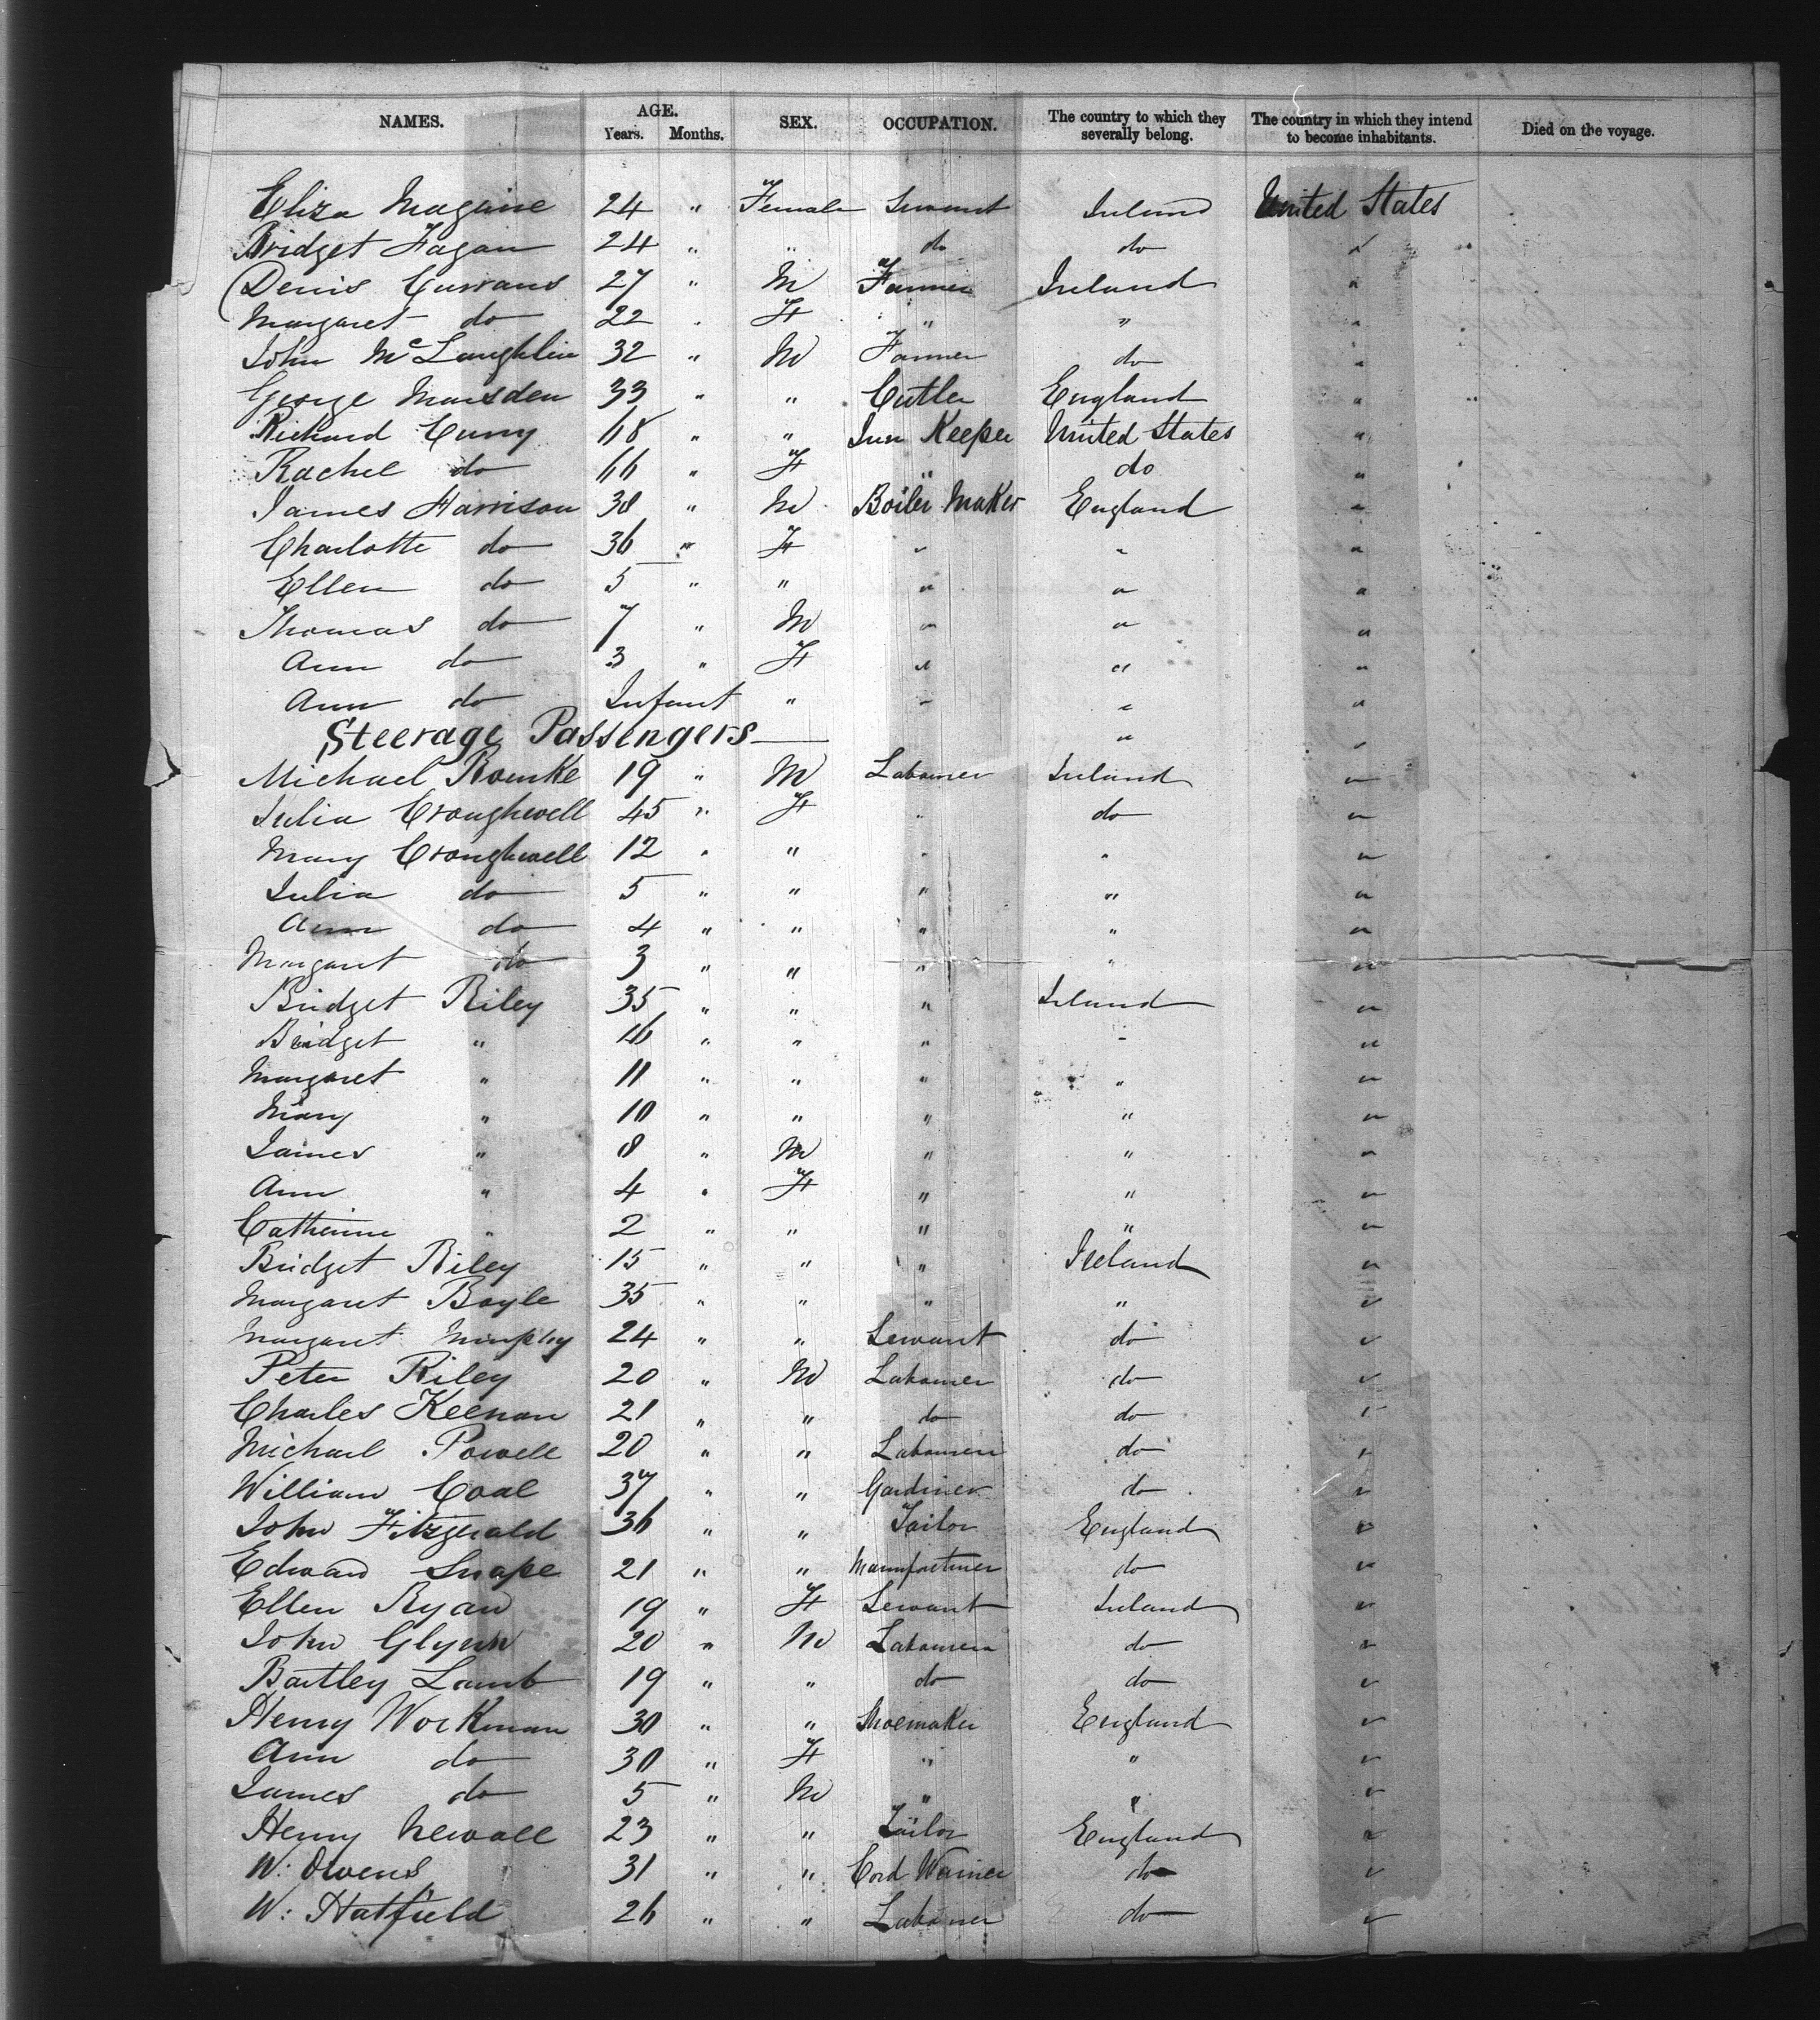 NAMES. AGE. Years. Months. SEX. OCCUPATION. The country to which they severally belong. The country in which they intend to become inhabitants. Died on the voyage.
Eliza Maguire 24 " Female Servant Ireland United States
Bridget Fagan 24 " " do do "
Denis Currans 27 " M Farmer Ireland "
Margaret do 22 " F " " "
John McLaughlin 32 " M Farmer do "
George Marsden 33 " " Cutler England "
Richard Curry " " Inn Keeper United States "
Rachel do 66 " F " do "
James Harrison 38 " M Boiler Maker England "
Charlotte do 36 " F " " "
Ellen do 5 " " " " "
Thomas do 7 " M " " "
Ann do 3 " F " " "
Ann do Infant " " " "
Steerage Passengers " "
Michael Rourke 19 " M Labourer Ireland "
Julia Croughwell 45 " F " do "
Mary Croughwell 12 " " " " "
Julia do 5 " " " " "
Ann do 4 " " " " "
Margaret do 3 " " " " "
Bridget Riley 35 " " " Ireland "
Bridget " 16 " " " " "
Margaret " 11 " " " " "
Mary " 10 " " " " "
James " 8 " M " " "
Ann " 4 " F " " "
Catherine " 2 " " " " "
Bridget Riley 15 " " " Ireland "
Margaret Boyle 35 " " " " "
Margaret Murphy 24 " " Servant do "
Peter Riley 20 " M Labourer do "
Charles Keenan 21 " " do do "
Michael Powell 20 " " Labourer do "
William Coal 37 " " Gardiner do "
John Fitzgerald 36 " " Tailor England "
Edward Snape 21 " " Manufacturer do "
Ellen Ryan 19 " F Servant Ireland "
John Glynn 20 " M Labourer do "
Bartley Lamb 19 " " do do "
Henry Workman 30 " " Shoemaker England "
Ann do 30 " F " " "
James do 5 " M " " "
Henry Newall 23 " " Tailor England "
W: Owens 31 " " Cord Wainer do "
W: Hatfield 26 " " Labourer do "